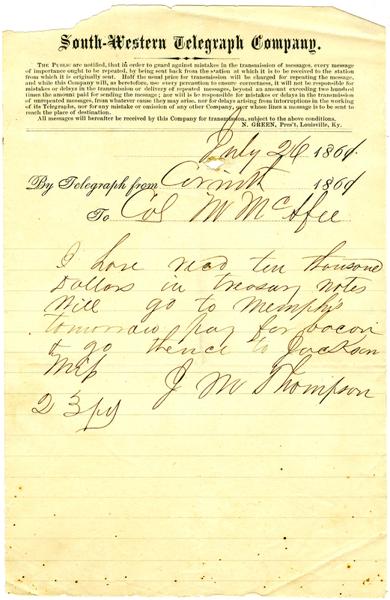 South-Western Telegraph Company.
THE PUBLIC are notified, that in order to guard against mistakes in the transmission of messages, every message
of importance ought to be repeated, by being sent back from the station at which it is to be received to the station
from which it is originally sent. Half the usual price for transmission will be charged for repeating the message,
and while this Company will, as heretofore, use every precaution to ensure correctness, it will not be responsible for
mistakes or delays in the transmission or delivery of repeated messages, beyond an amount exceeding two hundred
times the amount paid for sending the message; nor will it be responsible for mistakes or delays in the transmission
of unrepeated messages, from whatever cause they may arise, nor for delays arising from interruptions in the working
of its Telegraphs, nor for any mistake or omission of any other Company, over whose lines a message is to be sent to
reach the place of destination.
All messages will hereafter be received by this Company for transmission, subject to the above conditions.
N. GREEN, Pres't, Louisville, Ky.
July 26 1861.
By Telegraph from Corinth 1861
To Col M McAfee
I have recd ten thousand
Dollars in treasury notes
Will go to Memphis
tomorrow pay for bacon
& go thence to Jackson
Miss
J M Thompson
23 pd